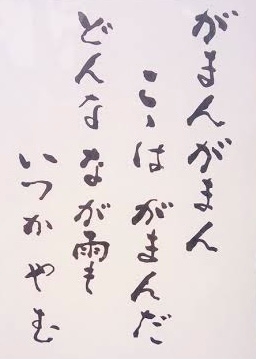 がまんがまん
こゝはがまんだ
どんなながが雨も
いつかやむ